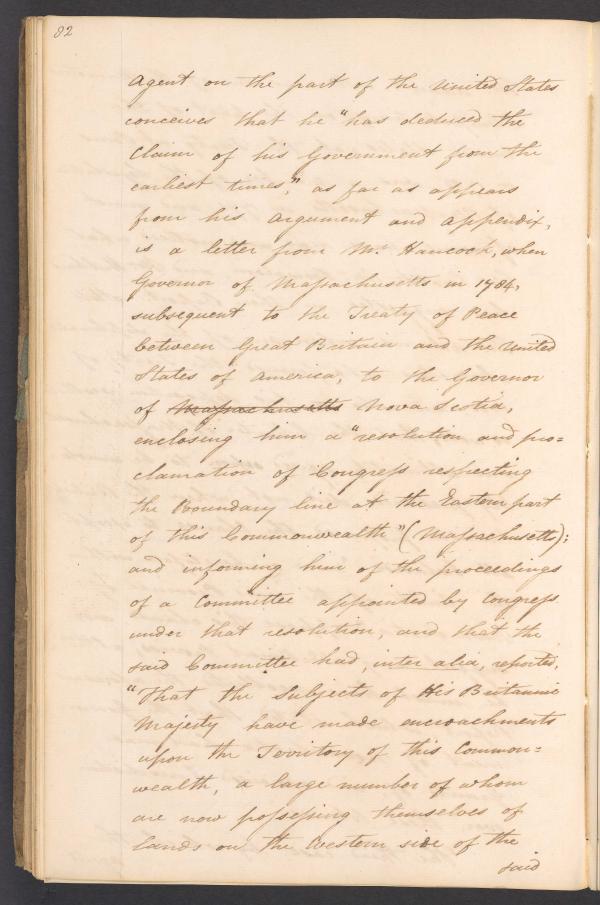 82
Agent on the part of the United States
conceives that he "has deduced the
Claim of his Government from the
earliest times," as far as appears
from his Argument and Appendix,
is a letter from Mr. Hancock, when
Governor of Massachusetts in 1784,
subsequent to the Treaty of Peace
between Great Britain and the United
States of America, to the Governor
of Massachusetts Nova Scotia,
enclosing him a "resolution and pro=
clamation of Congress respecting
the Boundary line at the Eastern part
of this Commonwealth" (Massachusetts);
and informing him of the proceedings
of a Committee appointed by Congress
under that resolution, and that the
said Committee had, inter alia, reported,
"That the Subjects of His Britannic
Majesty have made encroachments
upon the Territory of this Common=
wealth, a large number of whom
are now possessing themselves of
lands on the Western side of the
said